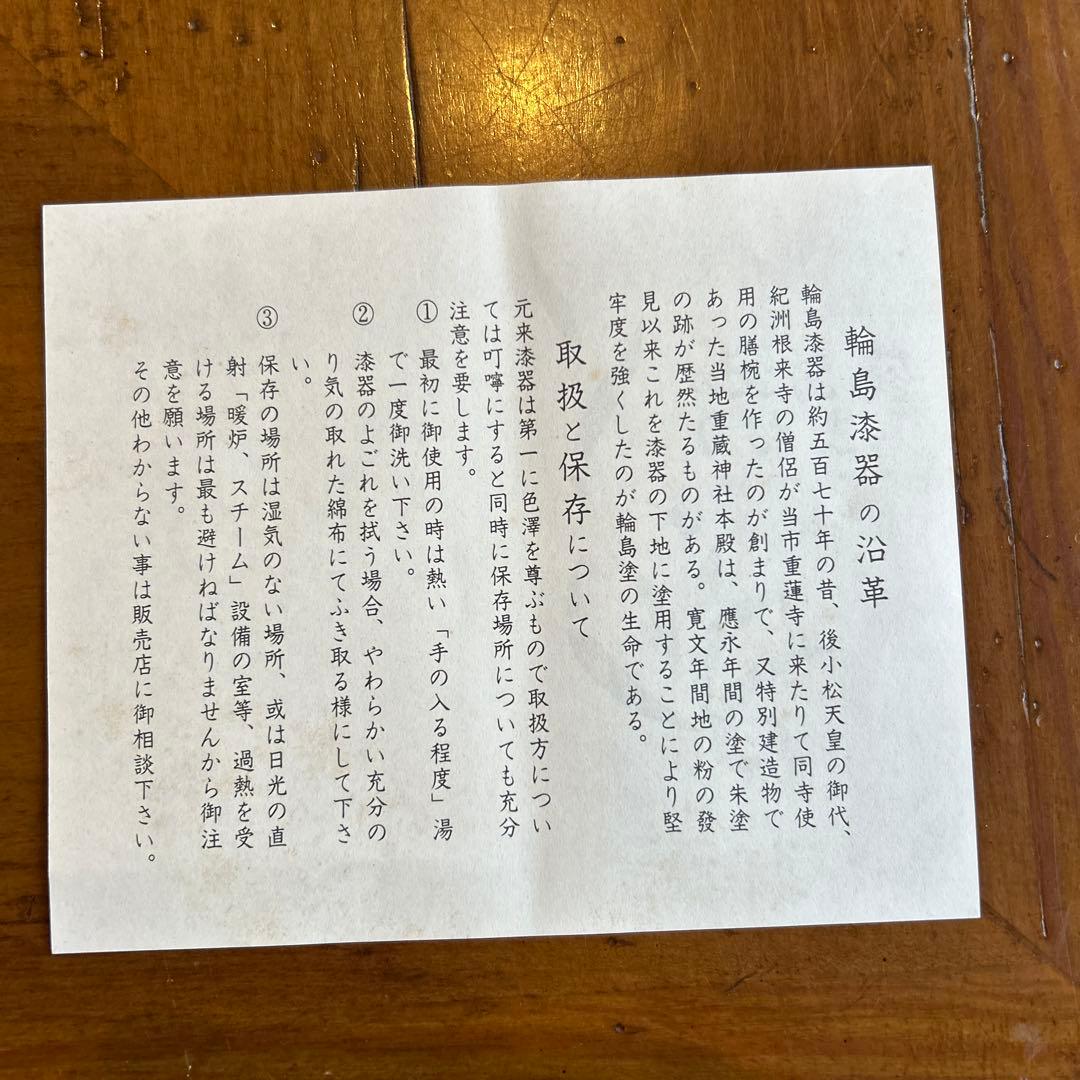 輪島漆器の沿革
輪島漆器は約五百七十年の昔、後小松天皇の御代、
紀洲根来寺の僧侶が当市重蓮寺に来たりて同寺使
用の膳椀を作ったのが創まりで、又特別建造物で
あった当地重蔵神社本殿は、應永年間の塗で朱塗
の跡が歴然たるものがある。寛文年間地の粉の發
見以来これを漆器の下地に塗用することにより堅
牢度を強くしたのが輪島塗の生命である。
取扱と保存について
元来漆器は第一に色澤を尊ぶもので取扱方につい
ては叮嚀にすると同時に保存場所についても充分
注意を要します。
① 最初に御使用の時は熱い「手の入る程度」湯
で一度御洗い下さい。
② 漆器のよごれを拭う場合、やわらかい充分の
り気の取れた綿布にてふき取る様にして下さ
い。
③ 保存の場所は湿気のない場所、或は日光の直
射「暖炉、スチーム」設備の室等、過熱を受
ける場所は最も避けねばなりませんから御注
意を願います。
その他わからない事は販売店に御相談下さい。